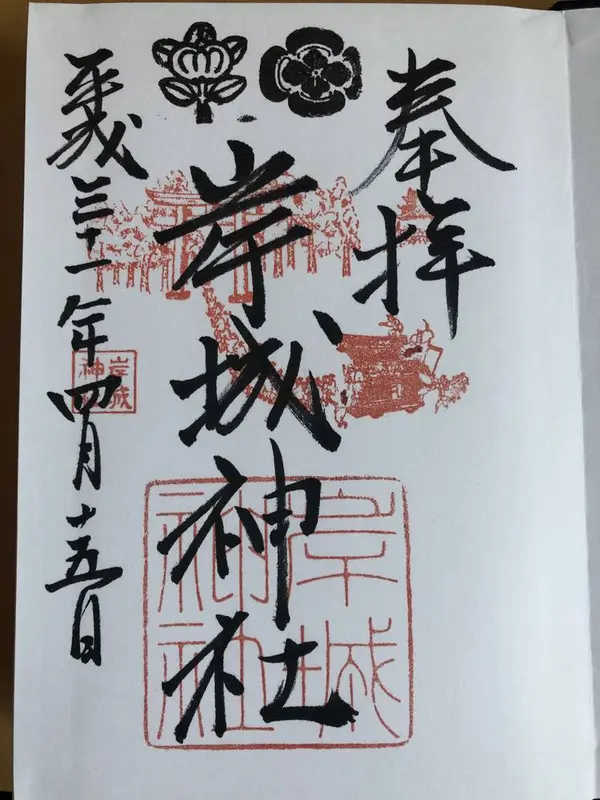 奉拝
岸城神社
平成三十一年四月十五日
岸城
神社
岸城
神